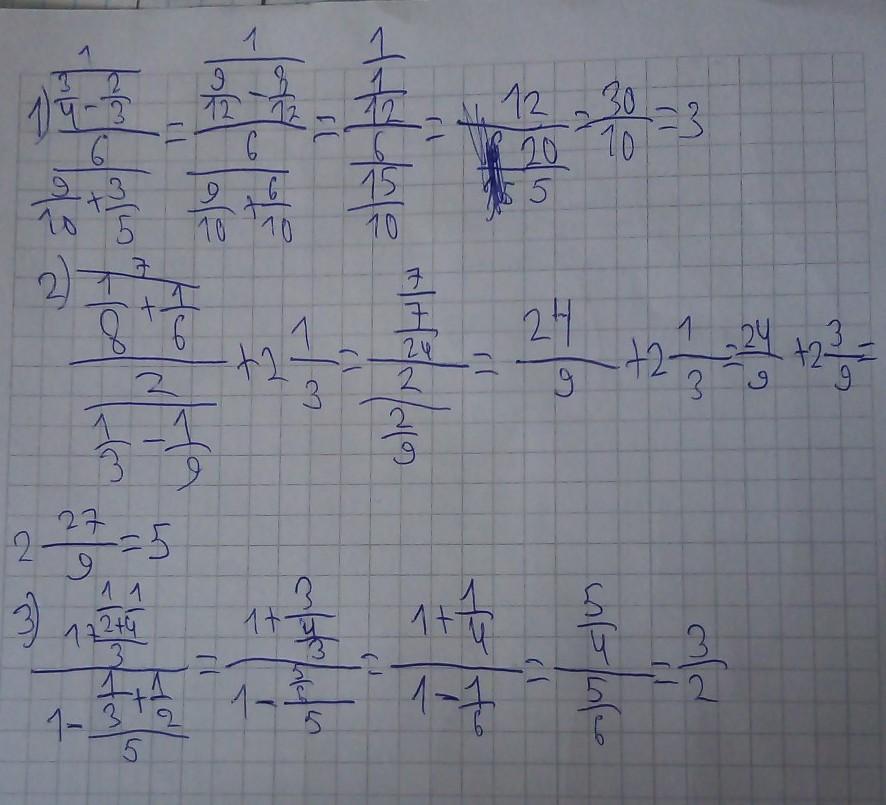 1) 1/(3/4 - 2/3) / 6/(9/10 + 3/5) = 1/(9/12 - 8/12) / 6/(9/10 + 6/10) = 1/(1/12) / 6/(15/10) = 12/(20/5) = 30/10 = 3
2) 7/(1/8 + 1/6) / 2/(1/3 - 1/9) + 2 1/3 = 7/(7/24) / 2/(2/9) = 24/9 + 2 1/3 = 24/9 + 2 3/9 =
2 27/9 = 5
3) (1 + (1/2 + 1/4)/3) / (1 - (1/3 + 1/2)/5) = (1 + (3/4)/3) / (1 - (5/6)/5) = (1 + 1/4) / (1 - 1/6) = (5/4) / (5/6) = 3/2